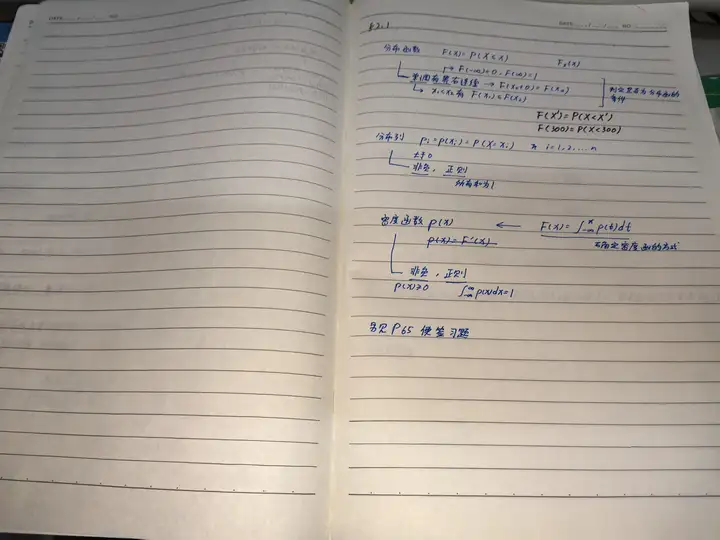 §2.1
分布函数 F(x)=P(X≤x) Fx(x)
→ F(-∞)=0 . F(∞)=1
单调有界右连续 → F(x₀+0)=F(x₀)
→ x₁<x₂ 有 F(x₁)≤F(x₂)
判定是否为分布函的条件
F(X')=P(X<X')
F(300)=P(X<300)
分布列 Pi=P(xi)=P(X=xi) i=1,2,...n
大于0
非负, 正则
所有和为1
密度函数 p(x) ← F(x)=∫₋∞ˣ p(t)dt
p(x)=F'(x)
确定密度函的方式
非负, 正则
p(x)≥0 ∫₋∞^∞ p(x)dx=1
另见 P65 便签习题